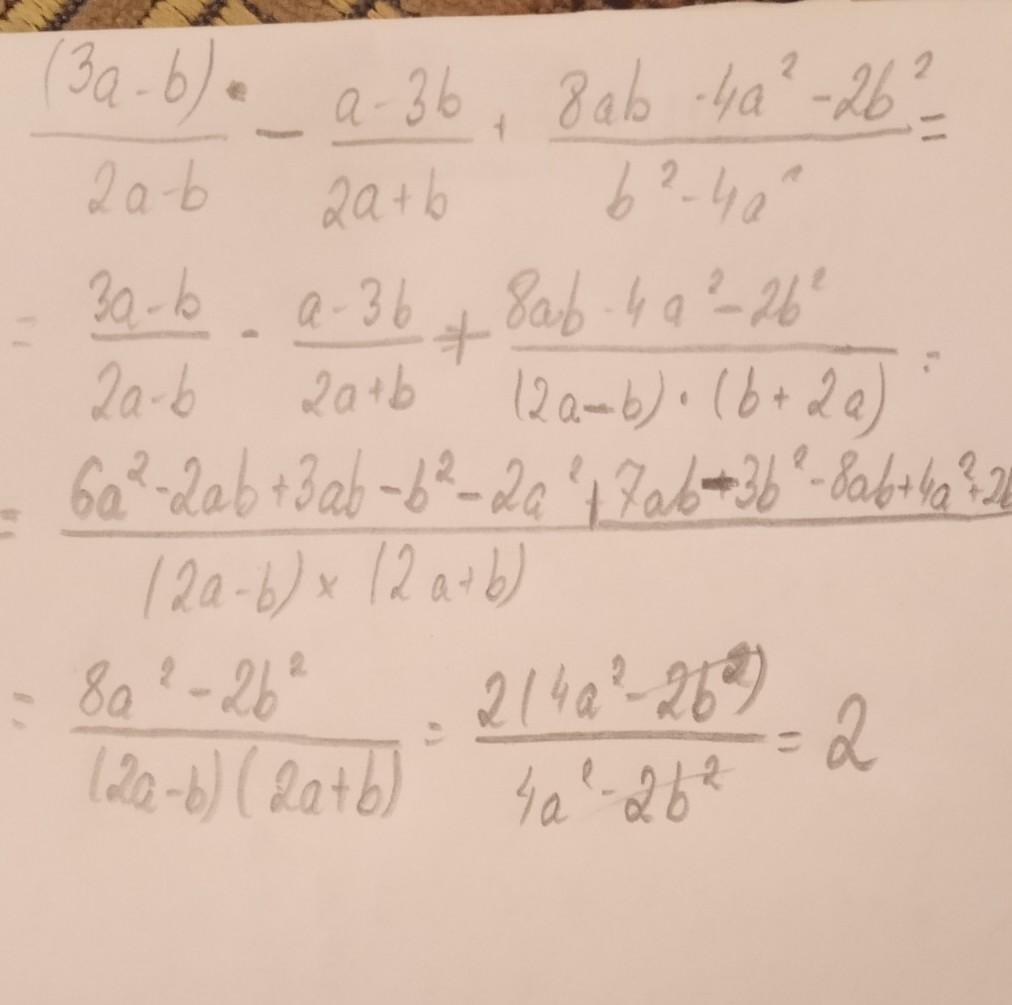 (3a-b)· / 2a-b - a-3b / 2a+b + 8ab -4a² -2b² / b²-4a² =
= 3a-b / 2a-b - a-3b / 2a+b + 8ab-4a²-2b² / (2a-b)·(b+2a) =
= 6a²-2ab+3ab-b²-2a²+7ab-3b²-8ab+4a²+2b / (2a-b)×(2a+b)
= 8a²-2b² / (2a-b)(2a+b) = 2(4a²-2b²) / 4a²-2b² = 2